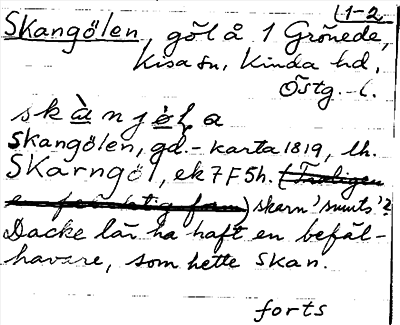 1-2
Skangölen, göl å 1 Grönede,
Kisa sn, Kinda hd,
Östg. l.
skànjö̀la
Skangölen, gd - karta 1819, lh.
Skarngöl, ek 7F5h. (Troligen
en felaktig form) skarn 'smuts'?
Dacke lär ha haft en befäl-
havare, som hette Skan.
forts